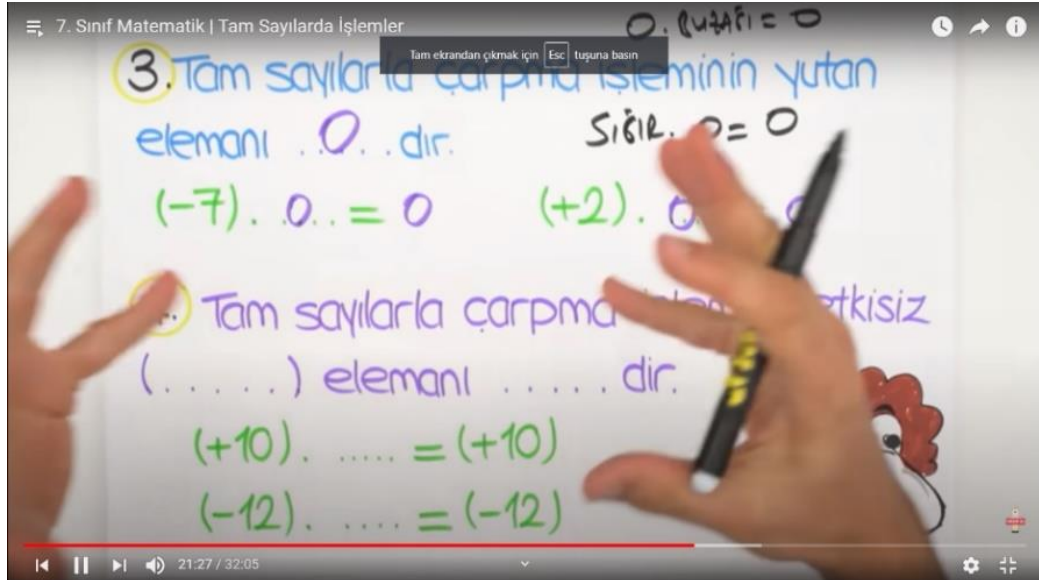 7. Sınıf Matematik | Tam Sayılarda İşlemler
0. BUZAĞI = 0
Tam ekrandan çıkmak için Esc tuşuna basın
3. Tam sayılarla çarpma işleminin yutan
elemanı ..0.. dır.
SIĞIR. 0 = 0
(-7). .0.. = 0
(+2). 0
Tam sayılarla çarpma etkisiz
(.....) elemanı ..... dir.
(+10). ..... = (+10)
(-12). .... = (-12)
21:27 / 32:05